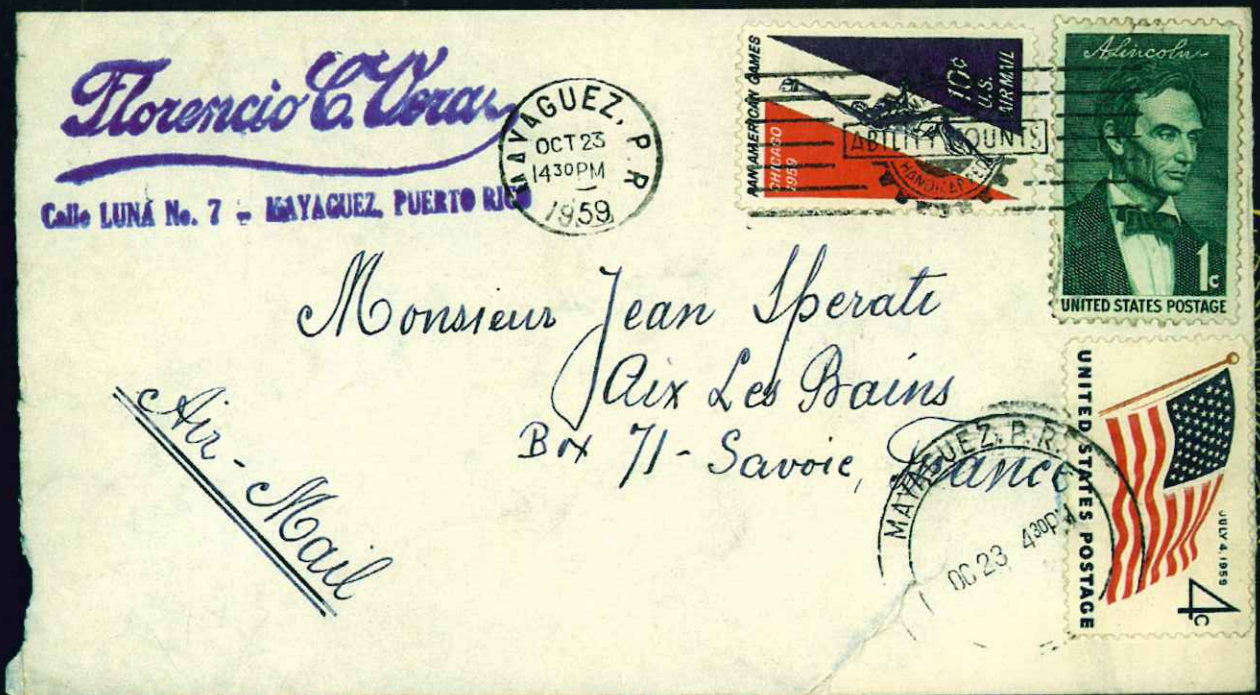 Florencio C. Vera
Calle LUNA No. 7 - MAYAGUEZ, PUERTO RICO
MAYAGUEZ, P.R.
OCT 23
14 30 PM
1959
PAN AMERICAN GAMES
CHICAGO
1959
10¢
U.S.
AIR MAIL
ABILITY COUNTS
HANDICAPPED
ALincoln
1c
UNITED STATES POSTAGE
Monsieur Jean Sperati
Aix Les Bains
Box 71 - Savoie, France
Air-Mail
MAYAGUEZ, P.R.
OC 23 4 30 PM
UNITED STATES POSTAGE
JULY 4, 1959
4c